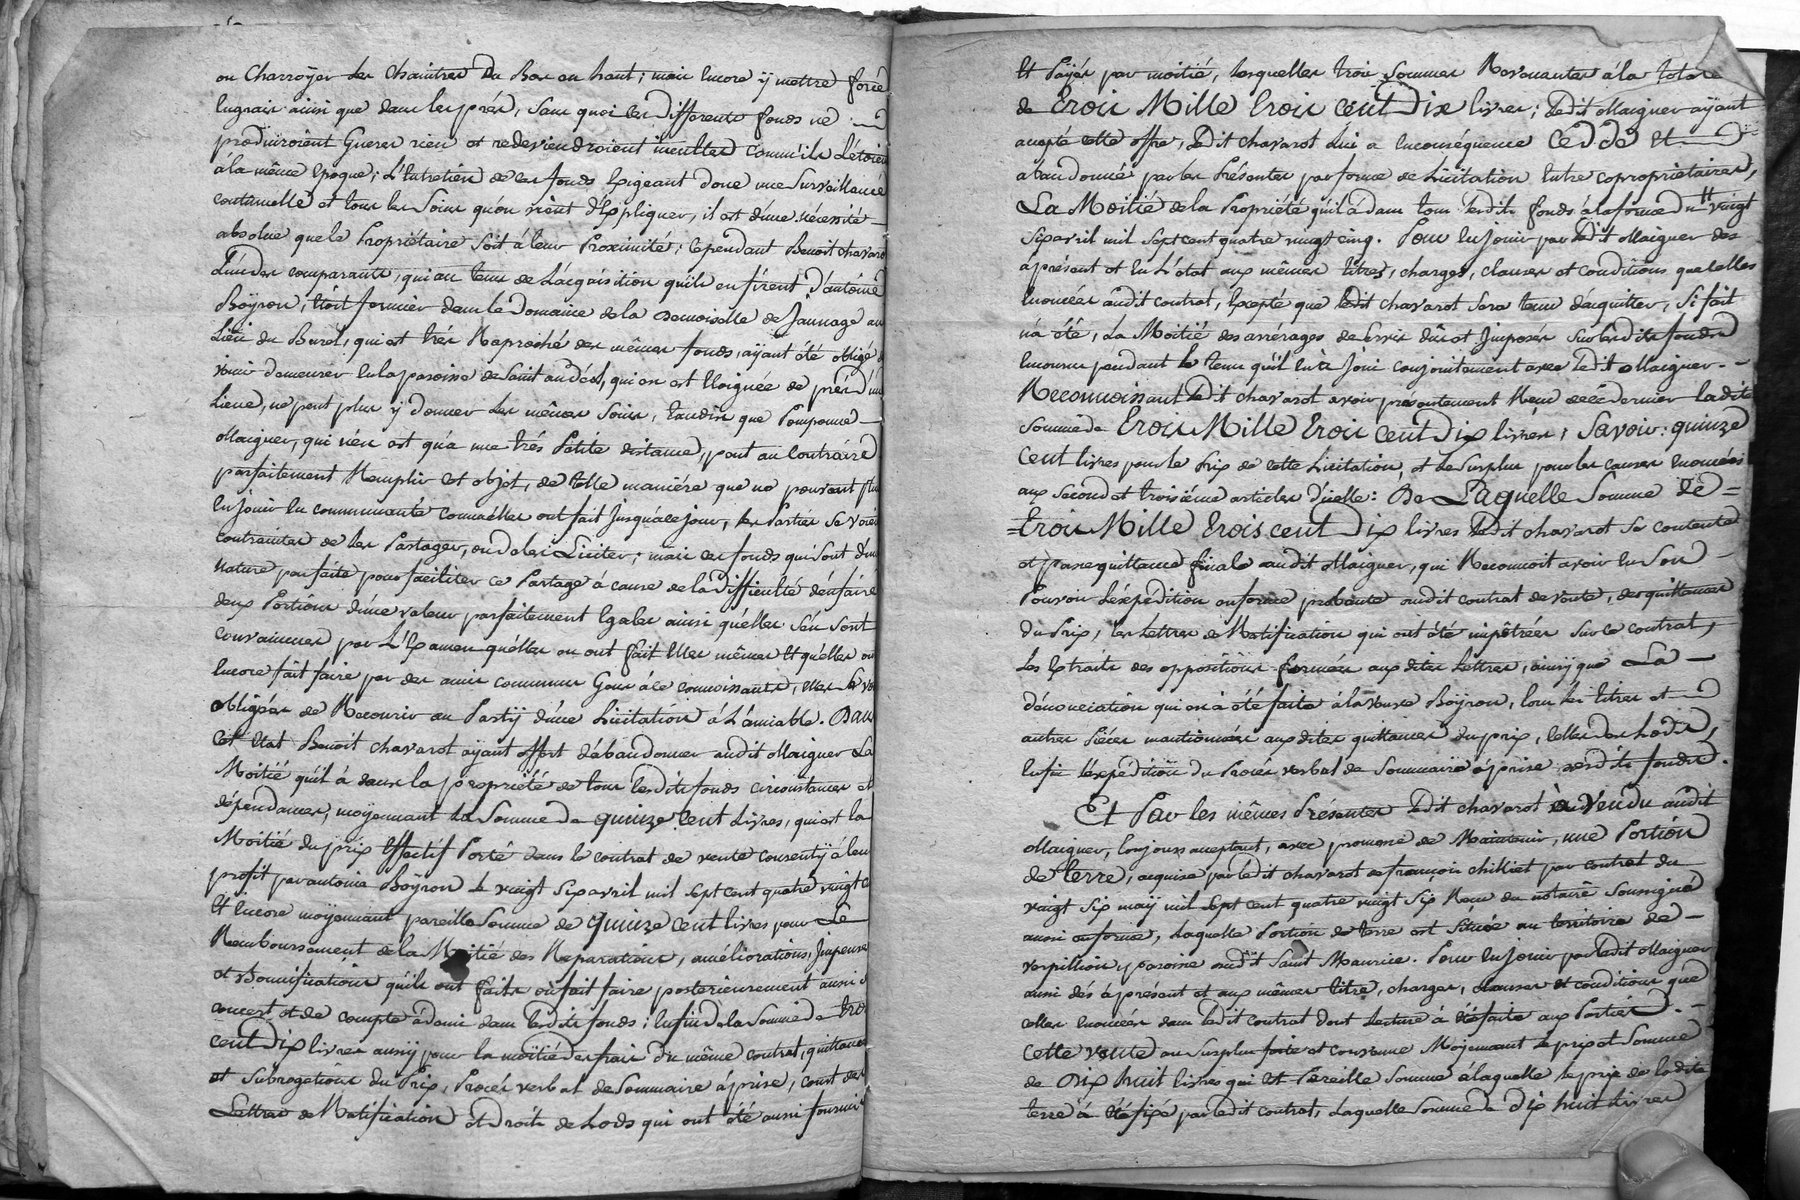 ou Charroÿer les Chaintres du Bas en haut; mais encore ÿ mettre force
Engrais ainsi que dans les prés, sans quoi ces differents fonds ne
produiroient Gueres rien et redeviendroient incultes comm'ils L'étoient
à la même Epoque; L'Entretien de ces fonds Exigeant donc une Survaillance
continuelle et tous les Soins qu'on vient d'Expliquer, il est d'une nécessité
absolue que le Propriétaire soit à leur Proximité; cependant Benoit chavarot
L'un des comparants, qui au tems de L'acquisition qu'ils en firent d'antoine
Boÿron, étoit fermier dans le Domaine de la Demoiselle de Jaunage au
Lieu du Buret, qui est très Raproché des mêmes fonds, aÿant été obligé de
venir demeurer en la paroisse de Saint andéol, qui en est Eloignée de près d'une
Lieue, ne peut plus ÿ donner les mêmes Soins, tandis que Pomponne
Maiguer, qui n'en est qu'a une très Petite distance, peut au Contraire
parfaitement Remplir cet objet, de telle manière que ne pouvant plus
En jouir En communauté comm'elles ont fait Jusqu'à ce jour, les Parties se voient
contraintes de les Partager, ou de les Liciter; mais ces fonds qui sont d'une
nature parfaite pour faciliter ce Partage à cause de la Difficulté d'en faire
deux Portions d'une valeur parfaitement Egales ainsi qu'elles s'en sont
convaincues par L'Examen qu'elles en ont fait Elles mêmes et qu'elles ont
Encore fait faire par des amis communs Gens à ce connoissants, elles se voient
obligées de Recourir au Partÿ d'une Licitation à L'amiable. Dans
cet Etat Benoit chavarot aÿant offert d'abandonner audit Maiguer La
Moitié qu'il à dans la propriété de tous lesdits fonds circonstances et
dépendances, moÿennant La Somme de quinze cent Livres, qui est la
Moitié du prix Effectif Porté dans le contrat de vente consentÿ à leur
profit par antoine Boÿron le vingt six avril mil sept cent quatre vingt cinq
Et Encore moÿennant pareille Somme de quinze cent livres pour Le
Remboursement de la Moitié des Reparations, améliorations, Impenses
et Bonifications qu'ils ont faits ou fait faire postérieurement aussi de
concert et de compte à demi dans lesdits fonds; Enfin de la Somme de trois
cent Dix livres aussÿ pour la moitié des frais du même contrat, quittances
et Subrogations du Prix, Procès verbal de Sommaire àprise, cout des
Lettres de Ratification et Droits de Lods qui ont été aussi fournis
Et Païés par moitié, lesquelles trois Sommes Revenantes à la totale
de trois Mille trois cent Dix livres; ledit Maiguer aÿant
accepté cette offre, ledit chavarot Lui a Enconséquence Ceddé Et
abandonné par les Présentes par forme de Licitation Entre copropriétaires,
La Moitié de la Propriété qu'il à dans tous lesdits fonds à la forme du vingt
Six avril mil sept cent quatre vingt cinq. Pour En Jouir par ledit Maiguer dès
àprésent et En L'état aux mêmes titres, charges, clauses et conditions que celles
Enoncées audit contrat, Excepté que ledit chavarot sera tenu d'acquitter, Si fait
n'a été, sa Moitié des arrérages de servis dûs et Imposés Sur lesdits fonds
Encourus pendant le tems qu'il En à Joui conjointement avec ledit Maiguer.
Reconnoissant ledit chavarot avoir présentement Reçu de ce dernier ladite
Somme de trois Mille trois cent Dix livres; Savoir: quinze
cent livres pour le Prix de cette Licitation, et le Surplus pour les causes Enoncées
aux second et troisième articles d'icelle: De Laquelle Somme de =
= trois Mille trois cent Dix livres ledit chavarot se contente
et passe quittance finale audit Maiguer, qui Reconnoit avoir En Son
Pouvoir L'expédition en forme probante audit contrat de vente, des quittances
du Prix, les Lettres de Ratification qui ont été impétrées Sur ce contrat,
Les Extraits des oppositions formées aux dites Lettres, ainsÿ que La
dénonciation qui en à été faite à la veuve Boÿron, tous les titres et
autres pièces mentionnées aux dites quittances du prix, celles des Lods,
Enfin l'expédition du Procès verbal de Sommaire àprise desdits fonds.
Et Par les mêmes Présentes ledit chavarot à vendu audit
Maiguer, toujours acceptant, avec promesse de Maintenir, une Portion
de terre, acquise par ledit chavarot de françois chilliet par contrat du
vingt Six maÿ mil sept cent quatre vingt Six Reçu du notaire Soussigné
aussi en forme, Laquelle Portion de terre est Située au territoire de
verpillion, paroisse audit Saint Maurice. Pour En Jouir par ledit Maiguer
aussi dès àprésent et aux mêmes titre, charges, clauses et conditions que
celles Enoncées dans ledit contrat dont Lecture à été faite aux Parties.
Cette vente au Surplus faite et convenue Moÿennant le prix et Somme
de Dix huit livres qui Est Pareille Somme à laquelle le prix de ladite
terre à été fixé par ledit contrat, Laquelle Somme de dix huit Livres